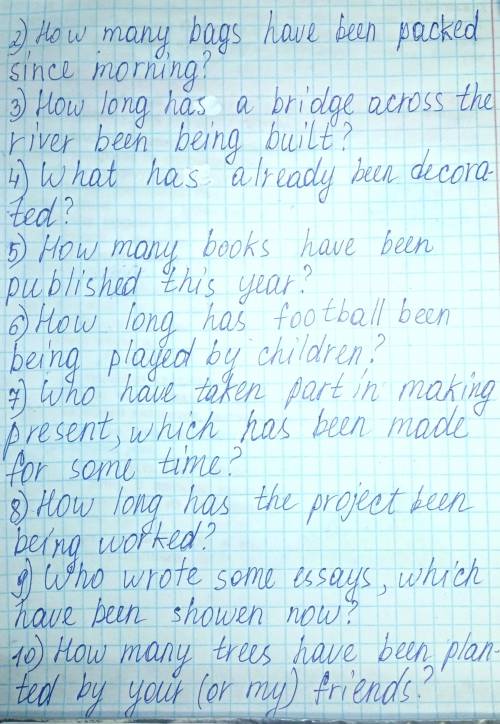 2) How many bags have been packed
since morning?
3) How long has a bridge across the
river been being built?
4) What has already been decora-
ted?
5) How many books have been
published this year?
6) How long has football been
being played by children?
7) Who have taken part in making
present, which has been made
for some time?
8) How long has the project been
being worked?
9) Who wrote some essays, which
have been showen now?
10) How many trees have been plan-
ted by your (or my) friends?